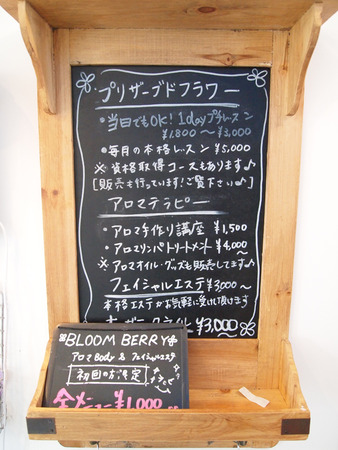 プリザーブドフラワー
・当日でもOK! 1dayプチレッスン
¥1.800〜¥3,000
・毎月の本格レッスン ¥5,000
※資格取得コースもあります♪
[販売も行っています!ご覧下さい♪]
アロマテラピー
・アロマ手作り講座 ¥1,500
・アロマリンパトリートメント ¥4,000〜
※アロマオイル・グッズも販売してます♪
フェイシャルエステ ¥3,000〜
本格エステがお気軽に受けて頂けます
¥3,000〜
BLOOM BERRY
アロマBody & フェイシャルエステ
初回の方限定
全メニュー ¥1,000